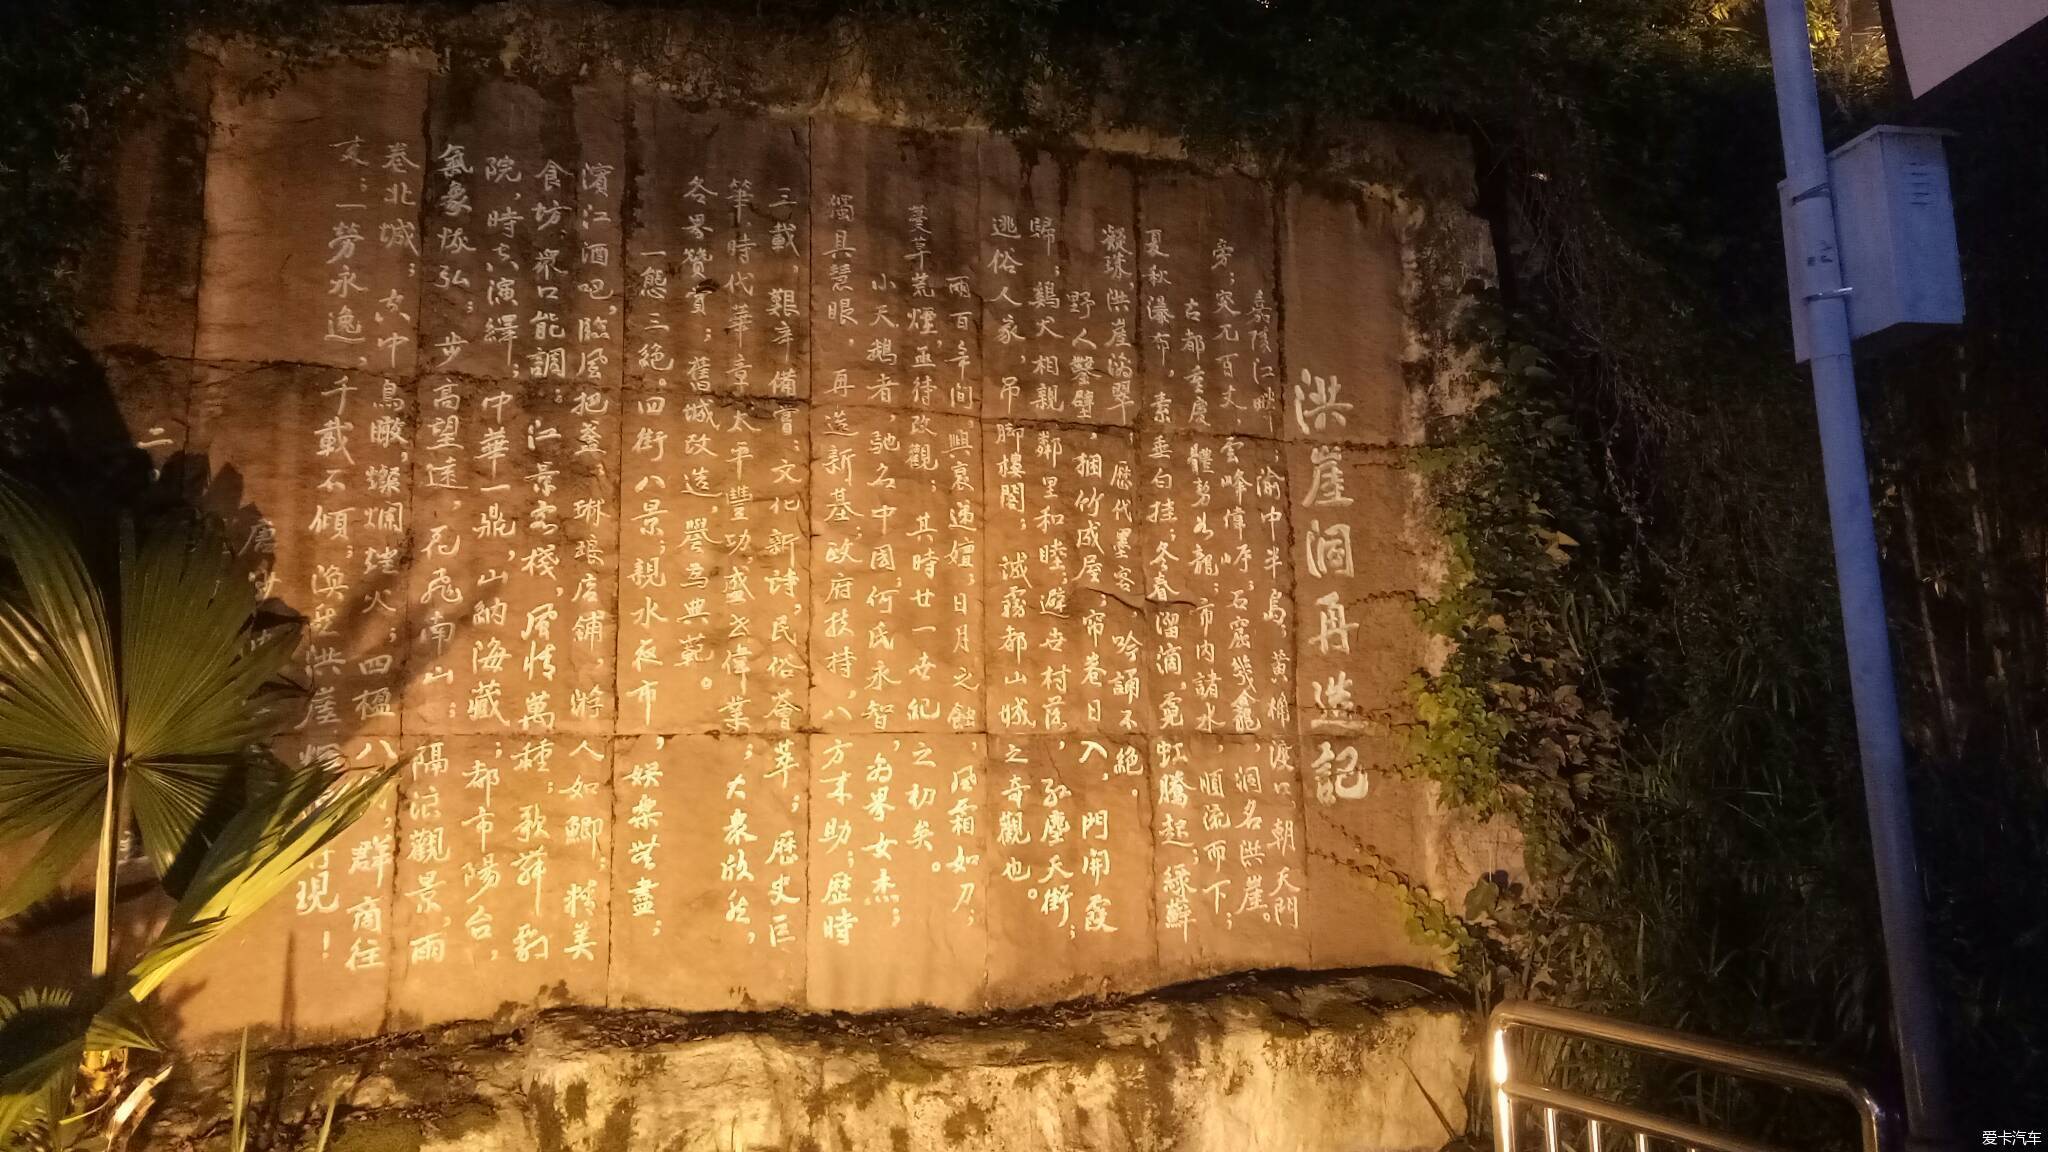 洪崖洞再造記
嘉陵江畔；渝中半島；黃桷渡口、朝天門
旁；突兀百丈；雲峰偉岸；石窟幾龕，洞名洪崖。
古都重慶，體勢如龍；市内諸水，順流而下；
夏秋瀑布，素垂白挂；冬春溜滴，霓虹騰起；綠蘚
凝珠，洪崖滴翠；歷代墨客，吟誦不絕。
野人鑿壁，捆竹成屋；帘卷日入，門開霞
歸；鷄犬相親，鄰里和睦；避世村落，紅塵天街；
逃俗人家，吊脚樓閣；誠霧都山城之奇觀也。
兩百年间，興衰递嬗；日月之蝕，風霜如刀；
蔓草荒煙，亟待改觀；其時廿一世紀之初矣。
小天鵝者，馳名中國；何氏永智，為界女杰；
獨具慧眼，再造新基；政府扶持，八方来助；歷時
三載，艱辛備嘗；文化新詩，民俗薈萃；歷史巨
筆，時代華章；太平豐功，盛世偉業；大衆欣然，
各界贊賞；舊城改造，譽為典範。
一態三絕。四街八景；親水夜市，娛樂無盡；
濱江酒吧，臨風把盞；琳琅店鋪，將人如鯽；精美
食坊，衆口能調；江景客棧，風情萬種；歌舞劇
院，時代演繹；中華一鼎，山納海藏；都市陽台，
氣象恢弘；步高望遠，花飛南山；隔江觀景，雨
卷北城；空中鳥瞰，燦爛燈火；四楹八，群商往
友；一劳永逸，千載不傾；渙然洪崖，現！
二
唐